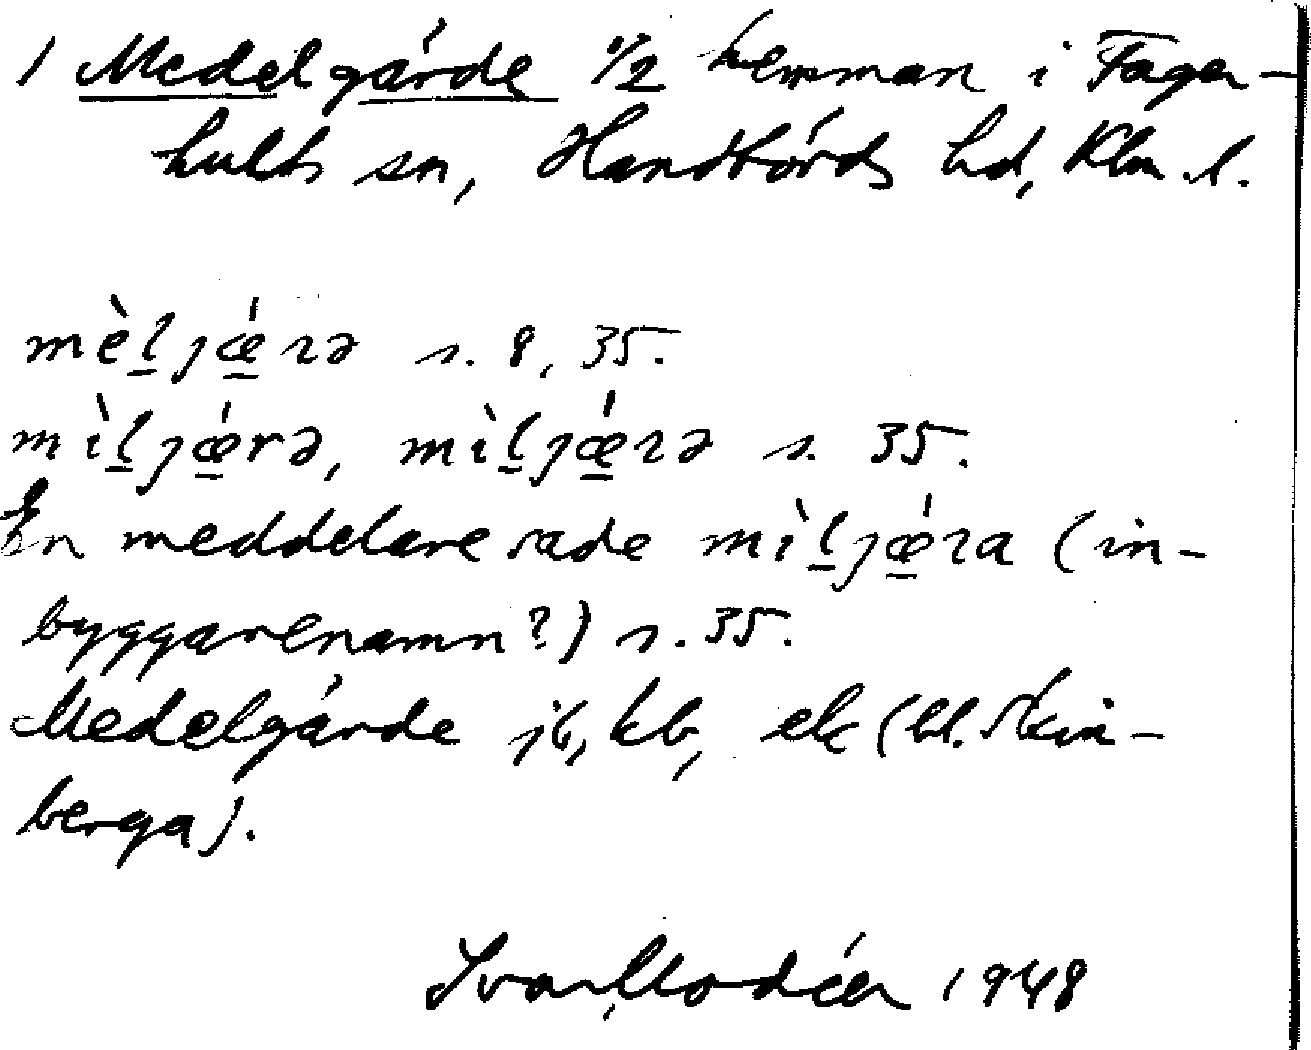 1 Medelgärde 1/2 hemman i Fager-
hults sn, Handbörds hd, Klm. l.
mèl̲jǽ̲rə s. 8, 35.
mìl̲jǽ̲rə, mìl̲jǽ̲rə s. 35.
En meddelare sade mìl̲jǽ̲ra (in-
byggarenamn?) s. 35.
Medelgärde jb, kb, ek (bl. Skin-
berga).
Ivar Modéer 1948